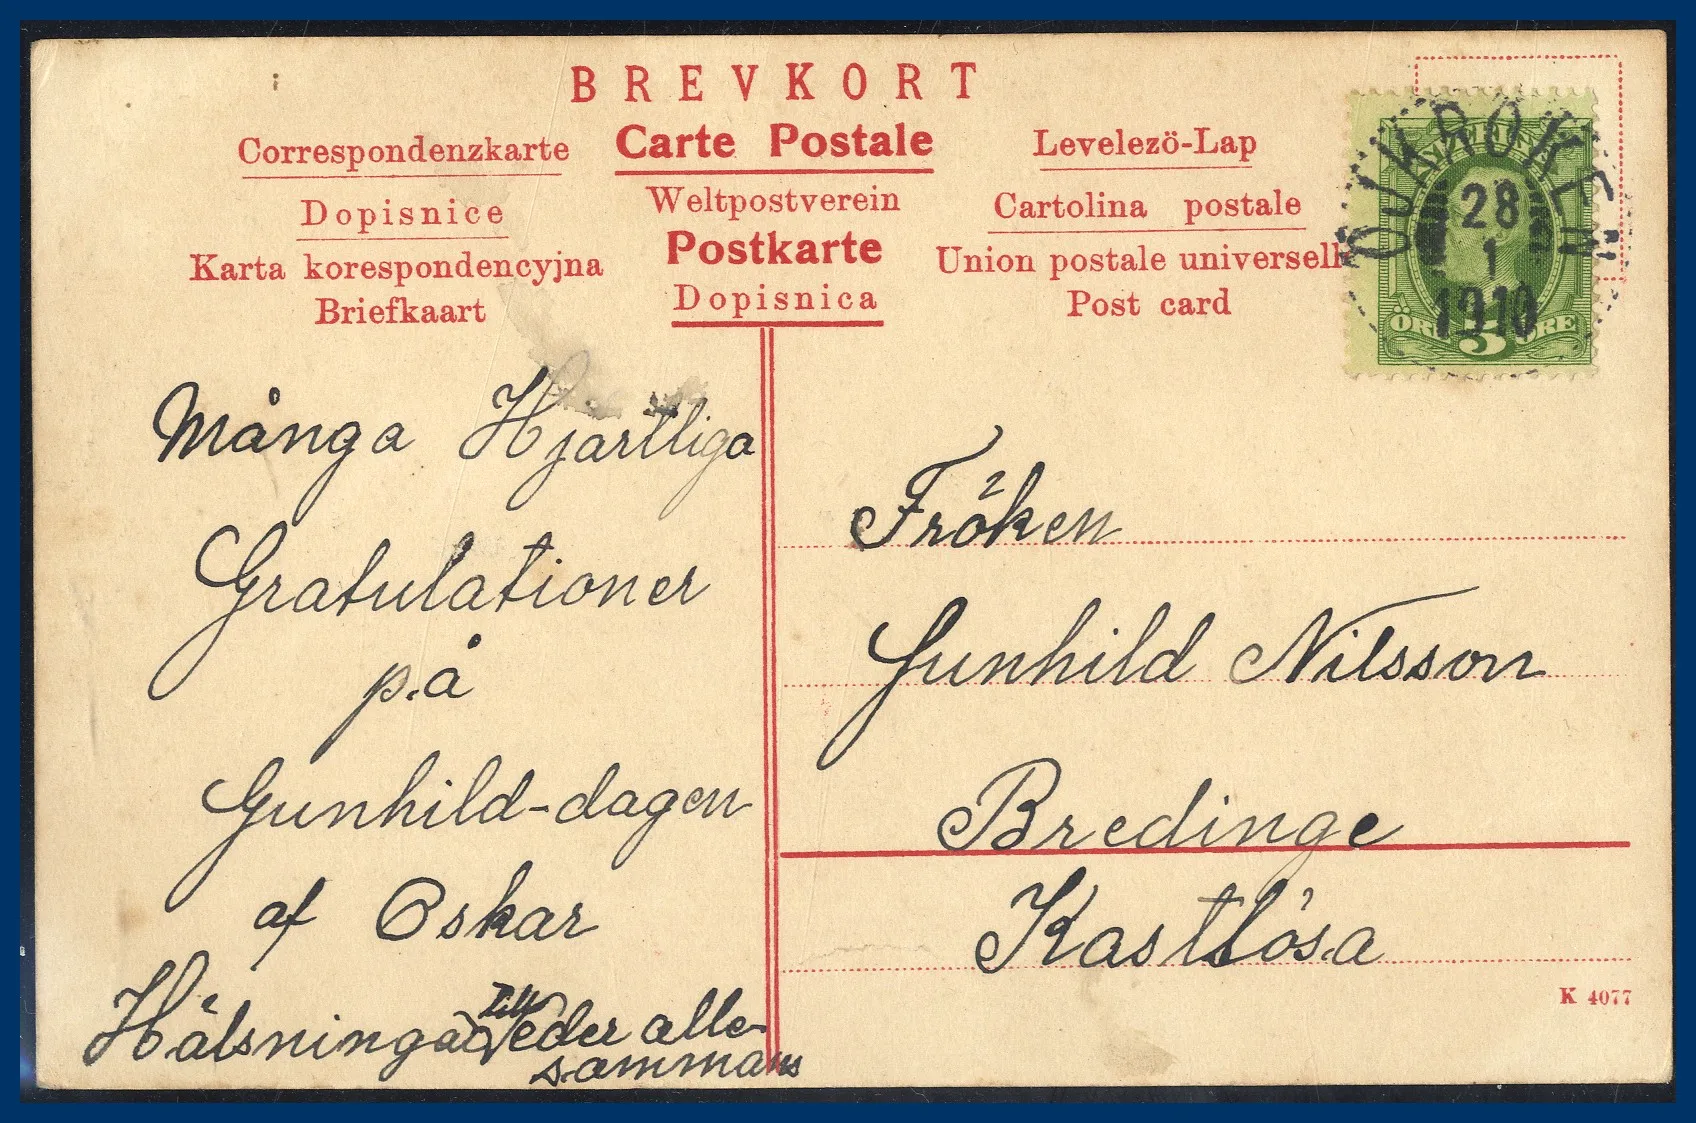 BREVKORT
Correspondenzkarte
Carte Postale
Levelezö-Lap
Dopisnice
Weltpostverein
Cartolina postale
Karta korespondencyjna
Postkarte
Union postale universell
Briefkaart
Dopisnica
Post card
28
1
1910
ÖRE 5 ÖRE
Många Hjärtliga
Gratulationer
på
Gunhild-dagen
af Oskar
Hälsningar till eder alle-
sammans
Fröken
Gunhild Nilsson
Bredinge
Kastlösa
K 4077